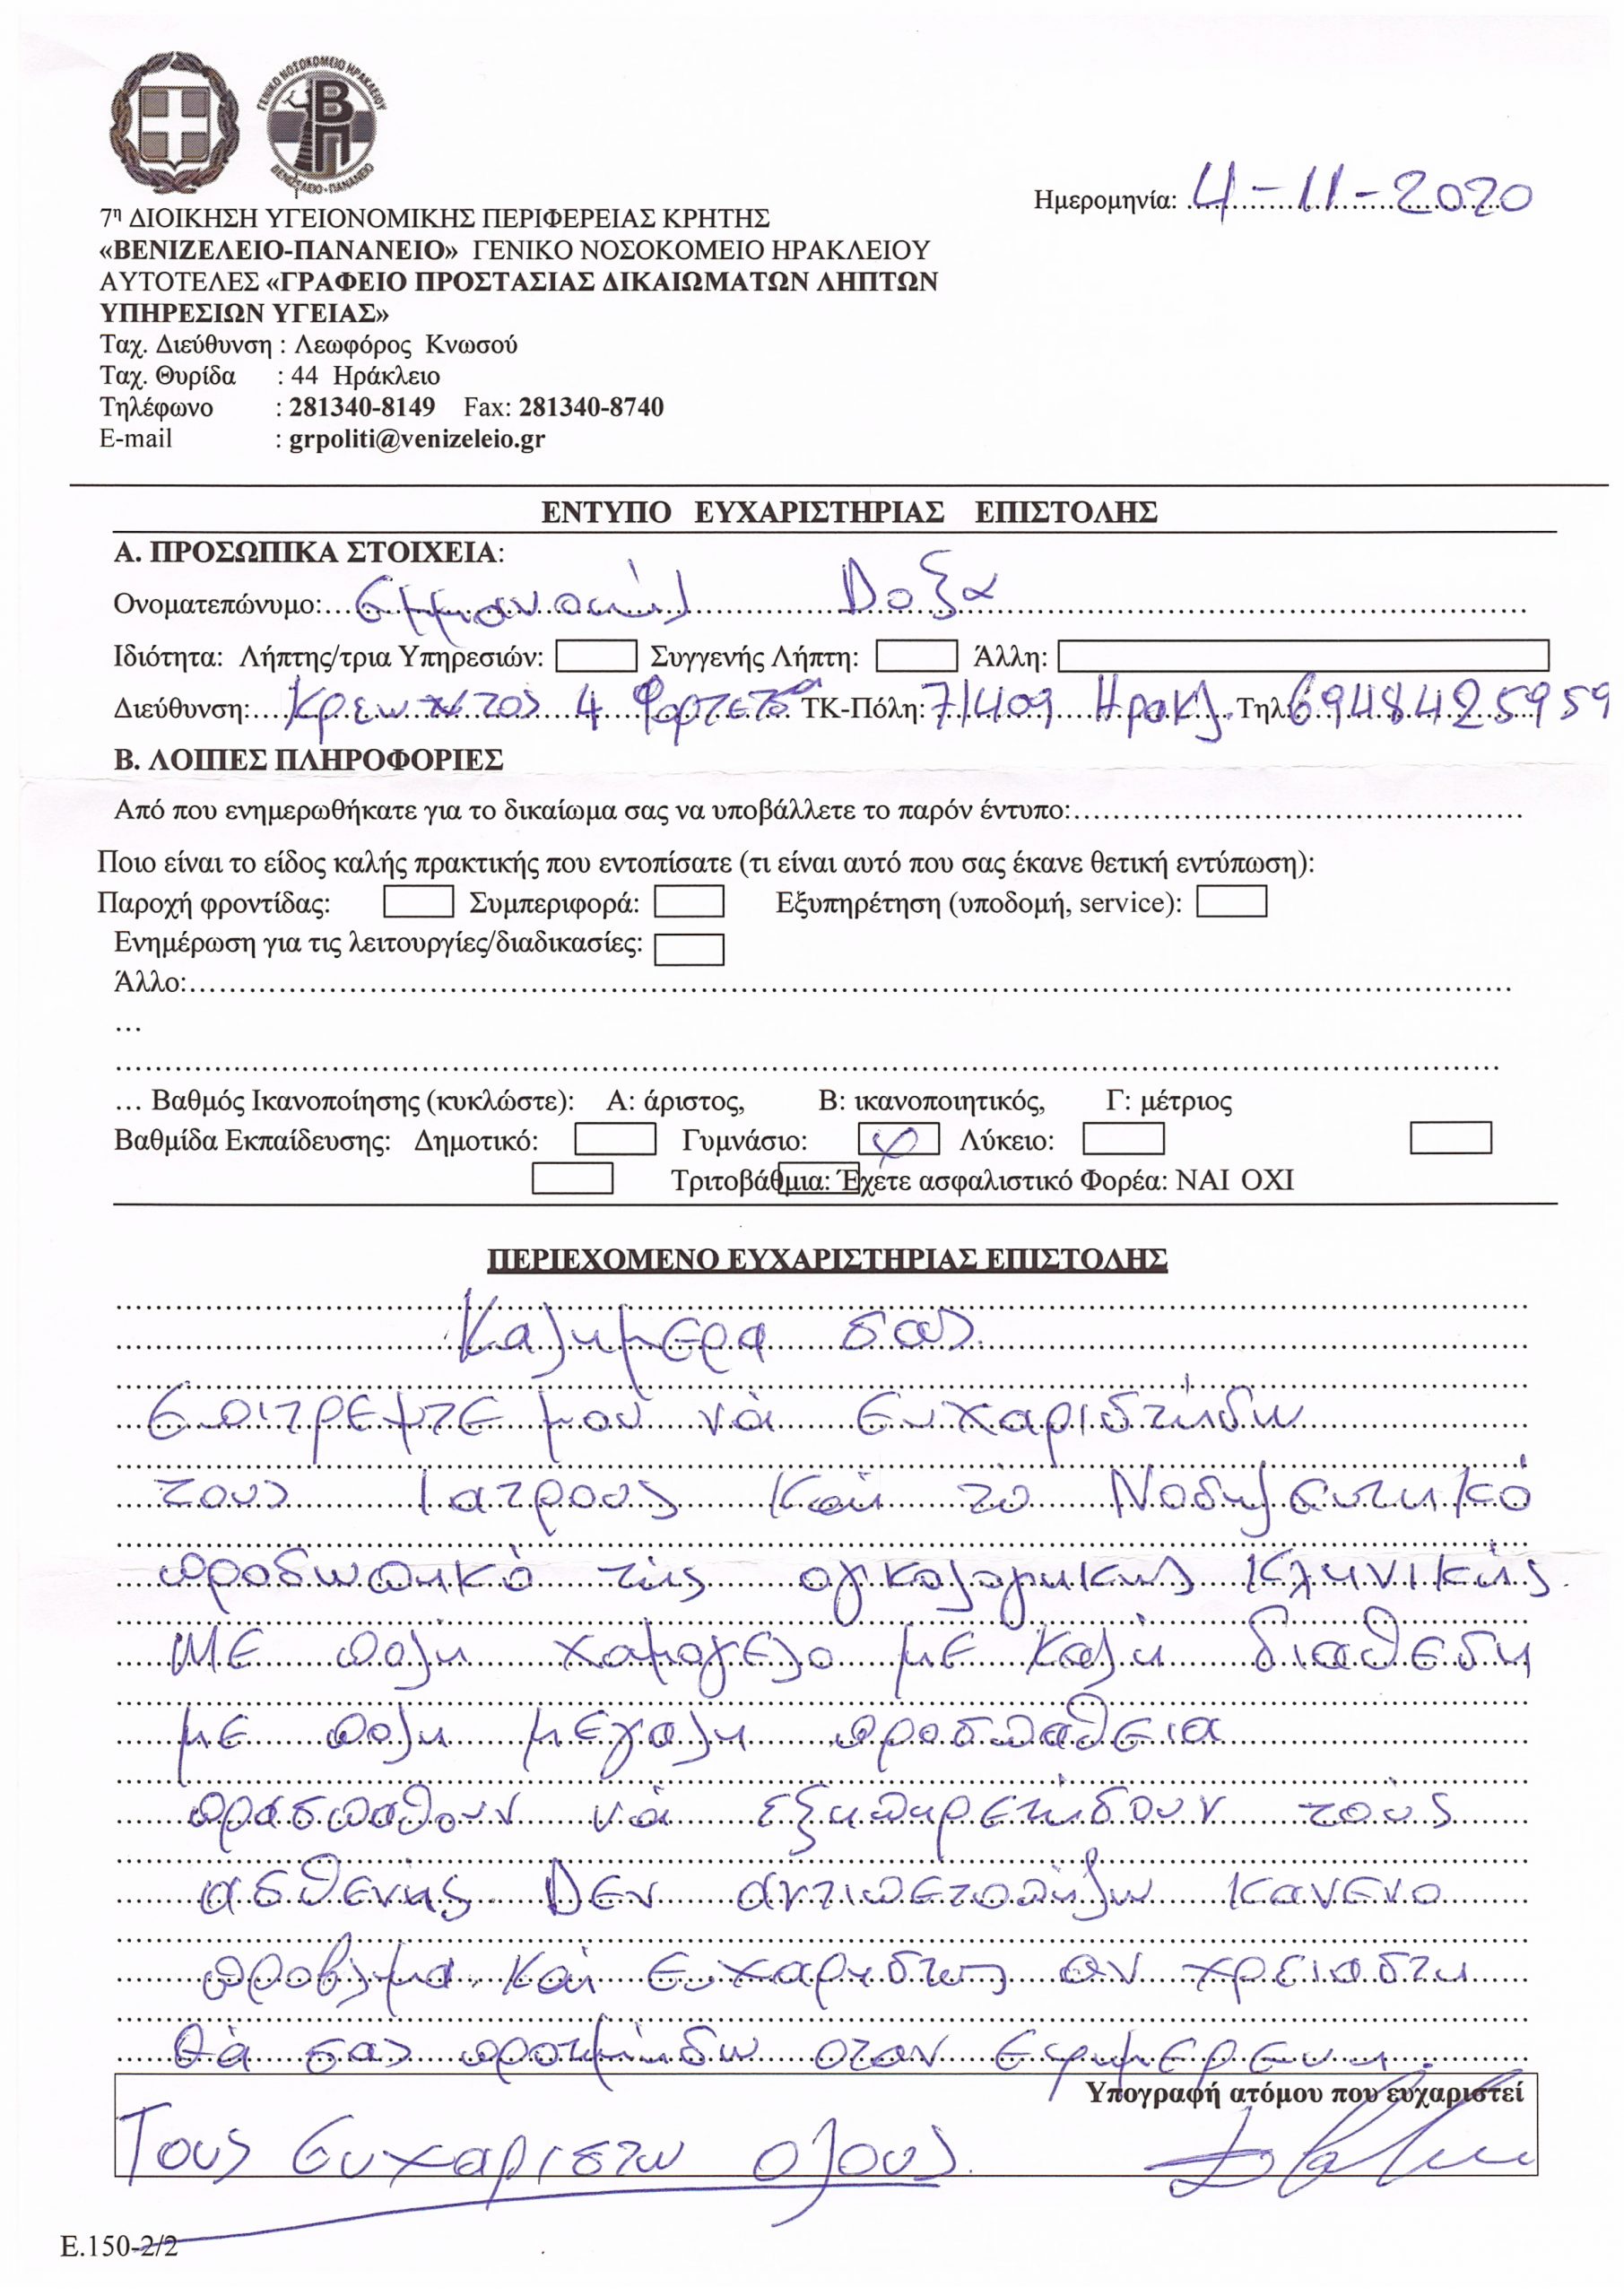 ΓΕΝΙΚΟ ΝΟΣΟΚΟΜΕΙΟ ΗΡΑΚΛΕΙΟΥ
ΒΠ
ΒΕΝΙΖΕΛΕΙΟ-ΠΑΝΑΝΕΙΟ
Ημερομηνία: 4-11-2020
7η ΔΙΟΙΚΗΣΗ ΥΓΕΙΟΝΟΜΙΚΗΣ ΠΕΡΙΦΕΡΕΙΑΣ ΚΡΗΤΗΣ
«ΒΕΝΙΖΕΛΕΙΟ-ΠΑΝΑΝΕΙΟ» ΓΕΝΙΚΟ ΝΟΣΟΚΟΜΕΙΟ ΗΡΑΚΛΕΙΟΥ
ΑΥΤΟΤΕΛΕΣ «ΓΡΑΦΕΙΟ ΠΡΟΣΤΑΣΙΑΣ ΔΙΚΑΙΩΜΑΤΩΝ ΛΗΠΤΩΝ
ΥΠΗΡΕΣΙΩΝ ΥΓΕΙΑΣ»
Ταχ. Διεύθυνση : Λεωφόρος Κνωσού
Ταχ. Θυρίδα : 44 Ηράκλειο
Τηλέφωνο : 281340-8149 Fax: 281340-8740
E-mail : grpoliti@venizeleio.gr
ΕΝΤΥΠΟ ΕΥΧΑΡΙΣΤΗΡΙΑΣ ΕΠΙΣΤΟΛΗΣ
Α. ΠΡΟΣΩΠΙΚΑ ΣΤΟΙΧΕΙΑ:
Ονοματεπώνυμο: Δοξα
Ιδιότητα: Λήπτης/τρια Υπηρεσιών: Συγγενής Λήπτη: Άλλη:
Διεύθυνση: 4 Φορτετσα ΤΚ-Πόλη: 71409 Ηρακλ. Τηλ: 6948425959
Β. ΛΟΙΠΕΣ ΠΛΗΡΟΦΟΡΙΕΣ
Από που ενημερωθήκατε για το δικαίωμα σας να υποβάλλετε το παρόν έντυπο:
Ποιο είναι το είδος καλής πρακτικής που εντοπίσατε (τι είναι αυτό που σας έκανε θετική εντύπωση):
Παροχή φροντίδας: Συμπεριφορά: Εξυπηρέτηση (υποδομή, service):
Ενημέρωση για τις λειτουργίες/διαδικασίες:
Άλλο:
…
… Βαθμός Ικανοποίησης (κυκλώστε): Α: άριστος, Β: ικανοποιητικός, Γ: μέτριος
Βαθμίδα Εκπαίδευσης: Δημοτικό: Γυμνάσιο: Λύκειο:
Τριτοβάθμια: Έχετε ασφαλιστικό Φορέα: ΝΑΙ ΟΧΙ
ΠΕΡΙΕΧΟΜΕΝΟ ΕΥΧΑΡΙΣΤΗΡΙΑΣ ΕΠΙΣΤΟΛΗΣ
Καλημερα σας.
Επιτρεψτε μου νά ευχαριστήσω
τους Ιατρους Και το Νοσηλευτηκό
προσωπηκό τής ογκολογηκης Κληνικής.
ΜΕ πολη χαμογελο με Καλή διαθεση
με πολη μεγαλη προσπαθεια
προσπαθουν νά εξηπηρετήσουν τούς
ασθενής. Δεν κανενα
προβλημα. Και ευχαρηστως αν χρειαστη
θά σας προτημήσω οταν εφημερευη.
Υπογραφή ατόμου που ευχαριστεί
Τους Ευχαριστω ολους.
Ε.150-2/2